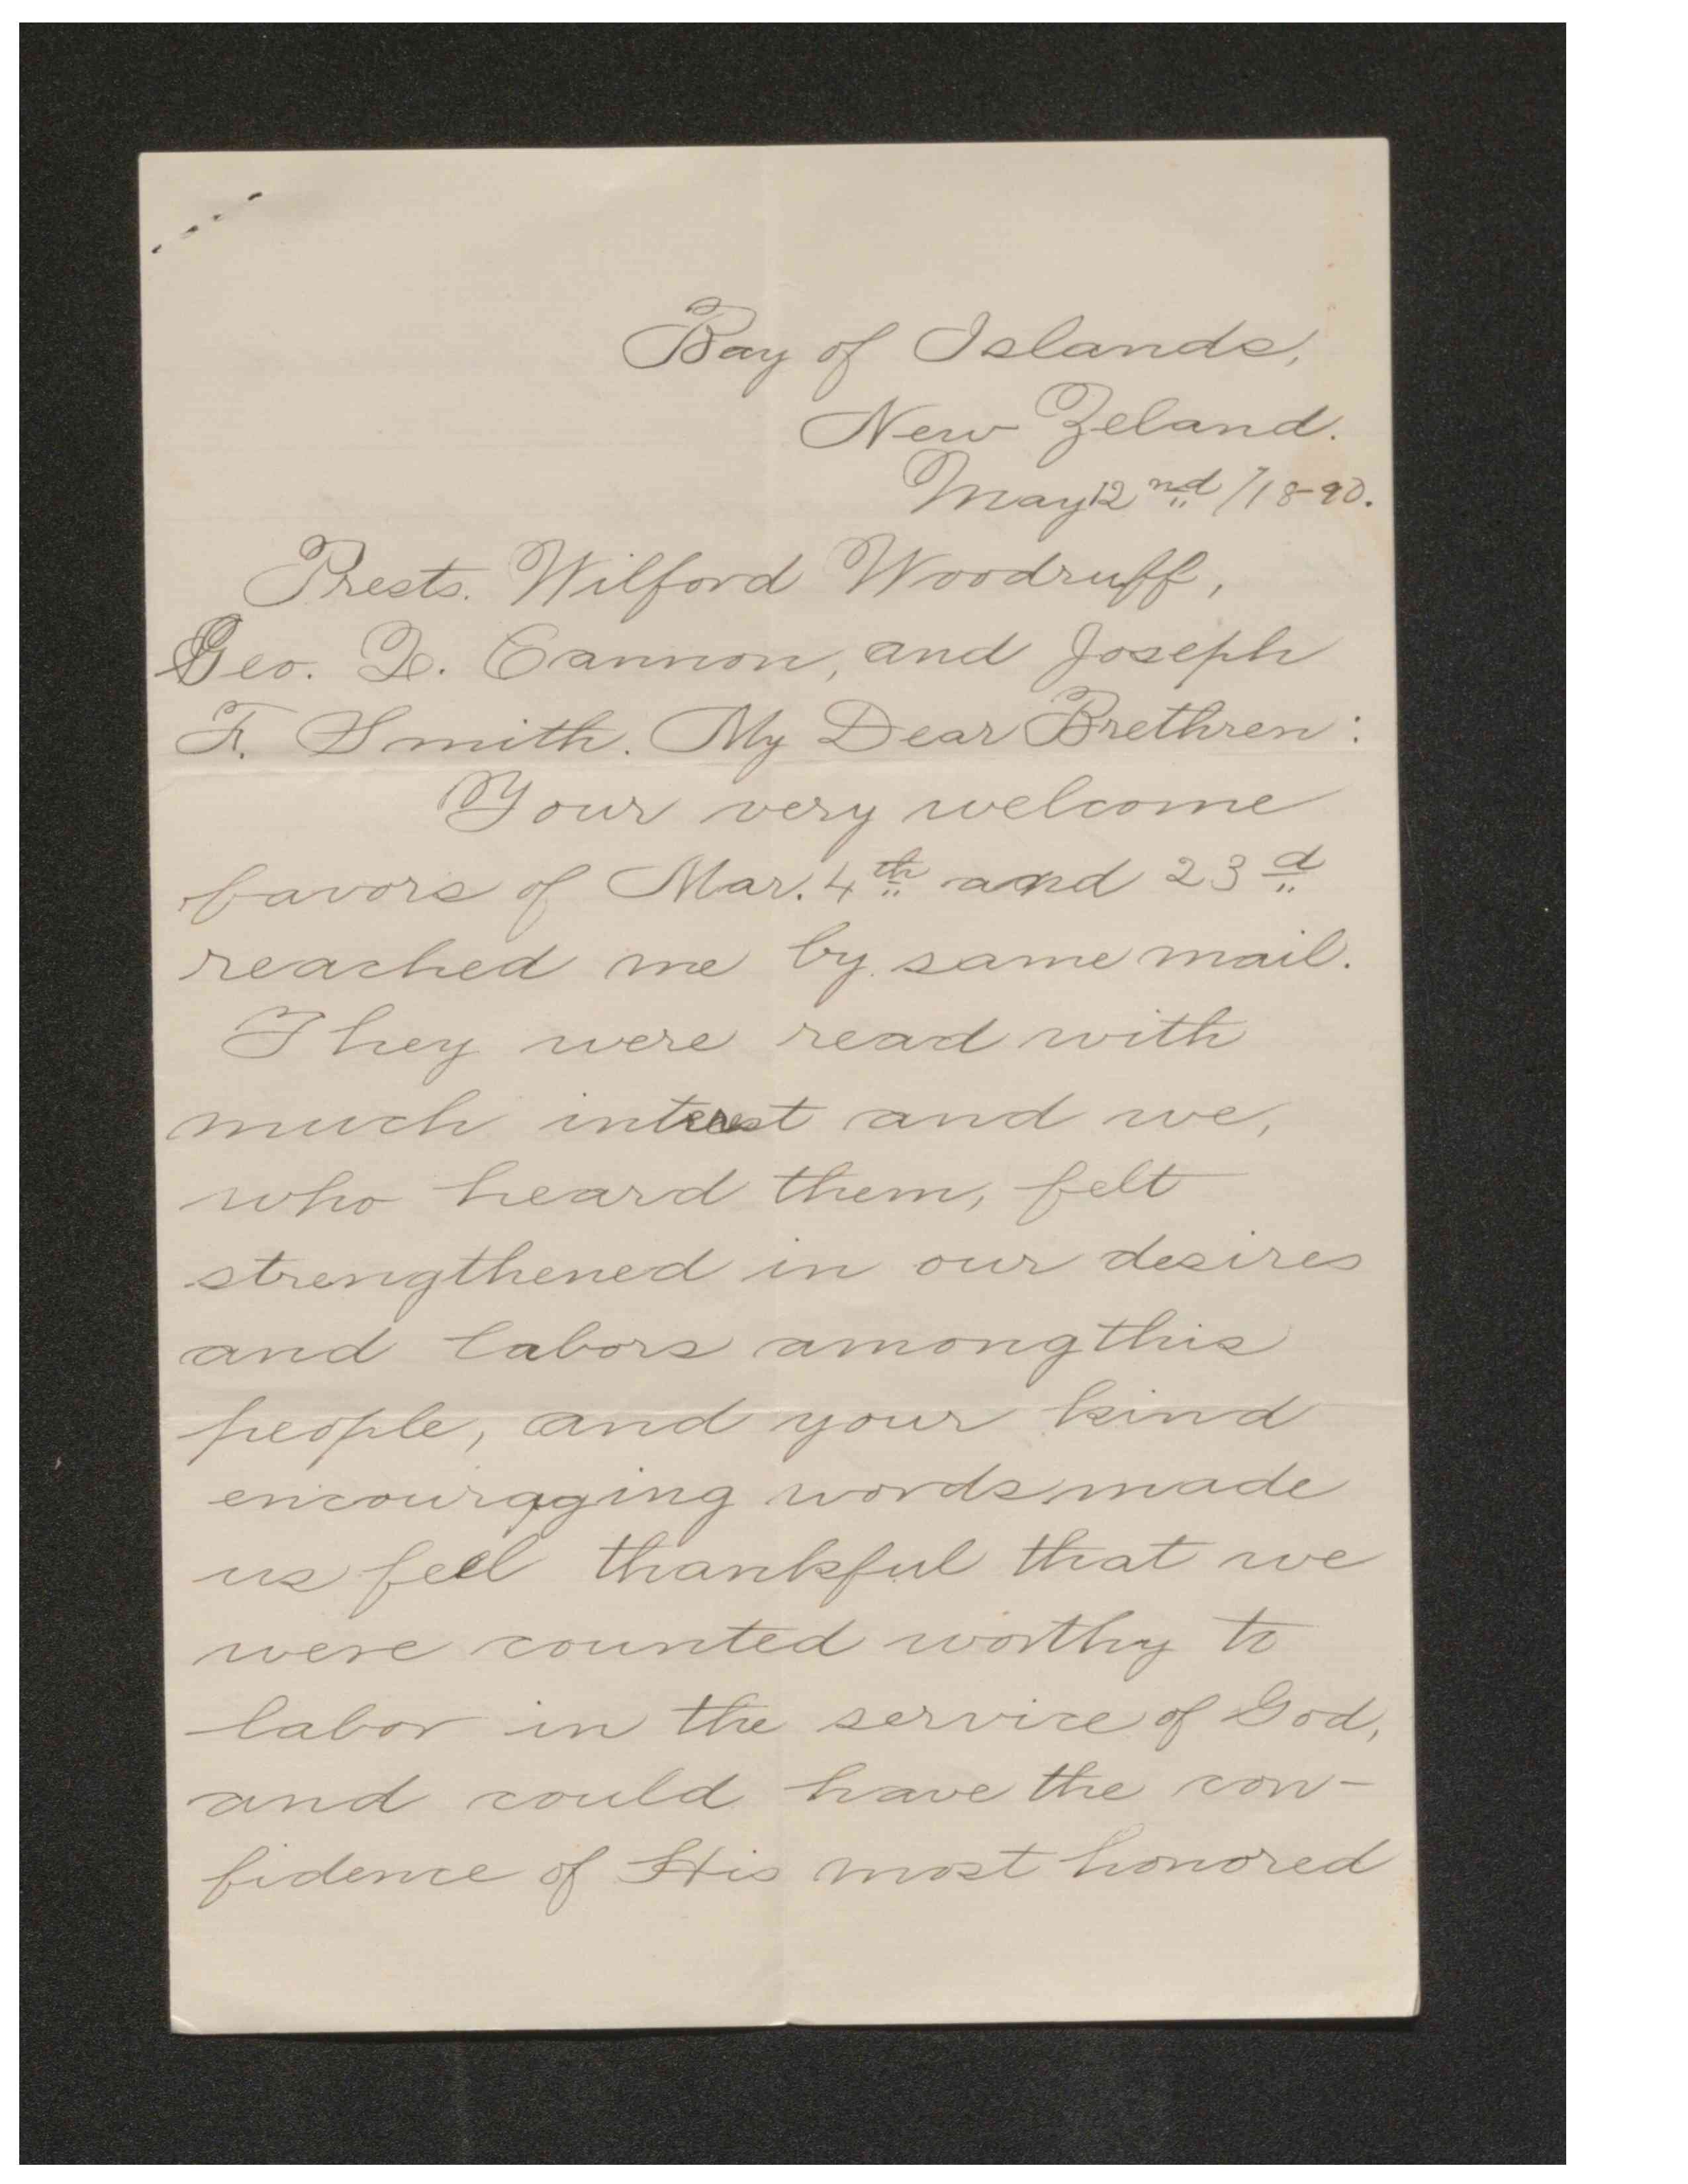 Bay of Islands,
New Zeland.
May 12nd/18-90.
Prests. Wilford Woodruff,
Geo. Q. Cannon, and Joseph
F. Smith. My Dear Brethren:
Your very welcome
favors of Mar. 4th and 23d
reached me by same mail.
They were read with
much interest and we,
who heard them, felt
strengthened in our desires
and labors among this
people, and your kind
encouraging words made
us feel thankful that we
were counted worthy to
labor in the service of God,
and could have the con-
fidence of His most honored